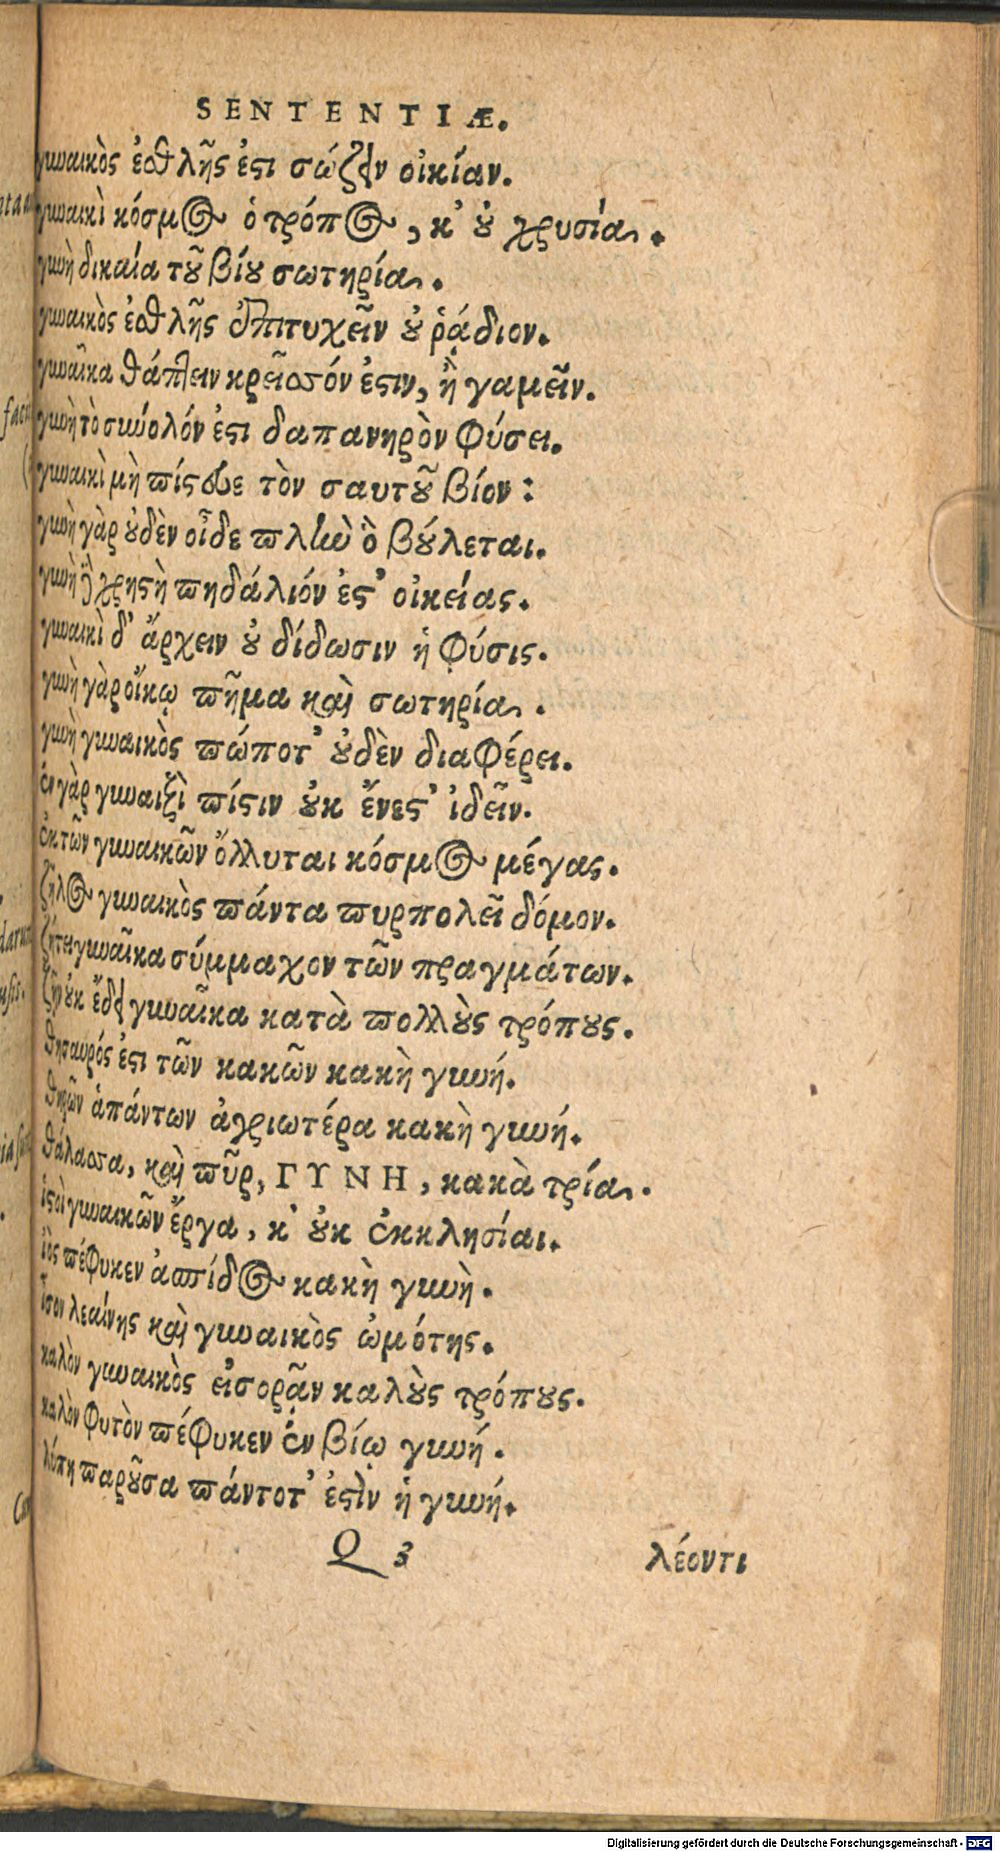 SENTENTIÆ.
γυναικὸς ἐσθλῆς ἐστι σώζειν οἰκίαν.
γυναικὶ κόσμος ὁ τρόπος, κ' οὐ χρυσία.
γυνὴ δικαία τοῦ βίου σωτηρία.
γυναικὸς ἐσθλῆς ἐπιτυχεῖν οὐ ῥᾴδιον.
γυναῖκα θάπτειν κρεῖσσόν ἐστιν, ἢ γαμεῖν.
γυνὴ τὸ σύνολόν ἐστι δαπανηρὸν φύσει.
γυναικὶ μὴ πίστευε τὸν σαυτοῦ βίον:
γυνὴ γὰρ οὐδὲν οἶδε πλὴν ὃ βούλεται.
γυνὴ ἢ χρηστὴ πηδάλιόν ἐστ' οἰκείας.
γυναικὶ δ' ἄρχειν οὐ δίδωσιν ἡ φύσις.
γυνὴ γὰρ οἴκῳ πῆμα καὶ σωτηρία.
γυνὴ γυναικὸς πώποτ' οὐδὲν διαφέρει.
ἐν γὰρ γυναιξὶ πίστιν οὐκ ἔνεστ' ἰδεῖν.
ἐκ τῶν γυναικῶν ὄλλυται κόσμος μέγας.
ζῆλος γυναικὸς πάντα πυρπολεῖ δόμον.
ζήτει γυναῖκα σύμμαχον τῶν πραγμάτων.
ζῆν οὐκ ἔδει γυναῖκα κατὰ πολλοὺς τρόπους.
θησαυρός ἐστι τῶν κακῶν κακὴ γυνή.
θηρῶν ἁπάντων ἀγριωτέρα κακὴ γυνή.
θάλασσα, καὶ πῦρ, ΓΥΝΗ, κακὰ τρία.
ἱστοὶ γυναικῶν ἔργα, κ' οὐκ ἐκκλησίαι.
ἰὸς πέφυκεν ἀσπίδος κακὴ γυνὴ.
ἴσον λεαίνης καὶ γυναικὸς ὠμότης.
καλὸν γυναικὸς εἰσορᾶν καλοὺς τρόπους.
καλὸν φυτὸν πέφυκεν ἐν βίῳ γυνή.
λύπη παροῦσα πάντοτ' ἐστὶν ἡ γυνή.
Q 3 λέοντι
Digitalisierung gefördert durch die Deutsche Forschungsgemeinschaft - DFG